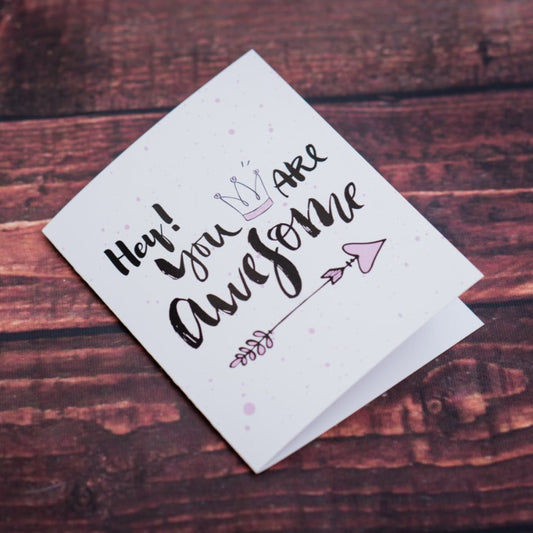 Hey!
You ARE
awesome